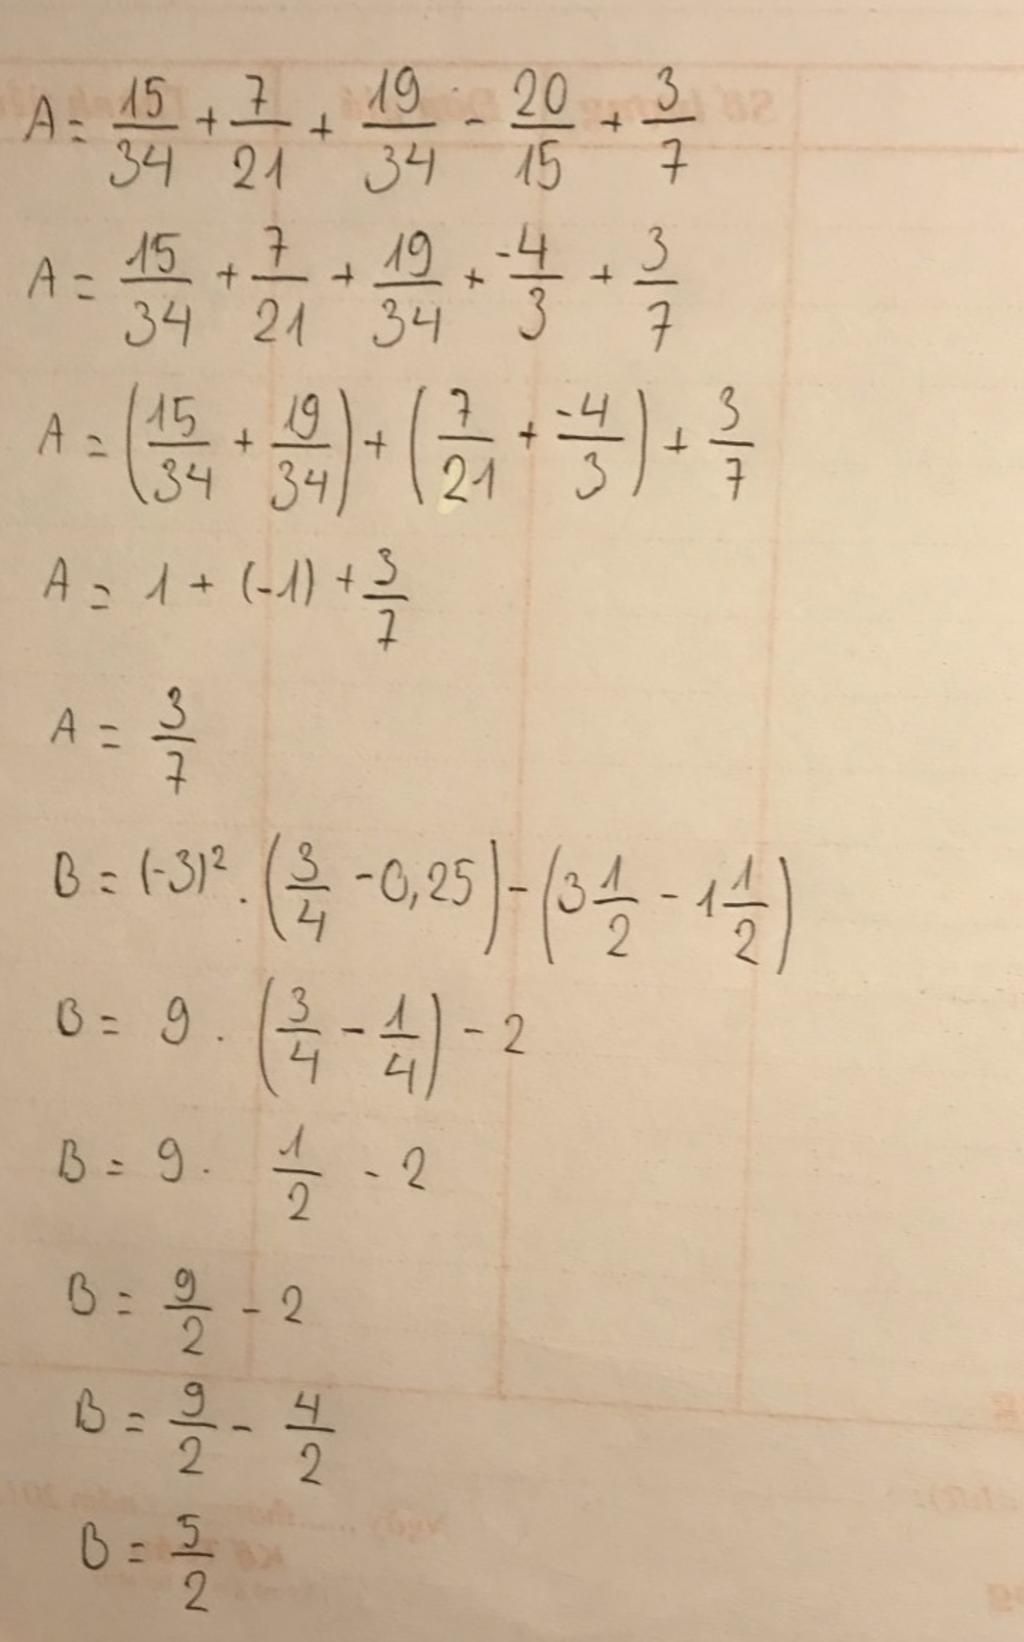 A = 15/34 + 7/21 + 19/34 - 20/15 + 3/7
A = 15/34 + 7/21 + 19/34 + -4/3 + 3/7
A = (15/34 + 19/34) + (7/21 + -4/3) + 3/7
A = 1 + (-1) + 3/7
A = 3/7
B = (-3)² . (3/4 - 0,25) - (3 1/2 - 1 1/2)
B = 9 . (3/4 - 1/4) - 2
B = 9 . 1/2 - 2
B = 9/2 - 2
B = 9/2 - 4/2
B = 5/2